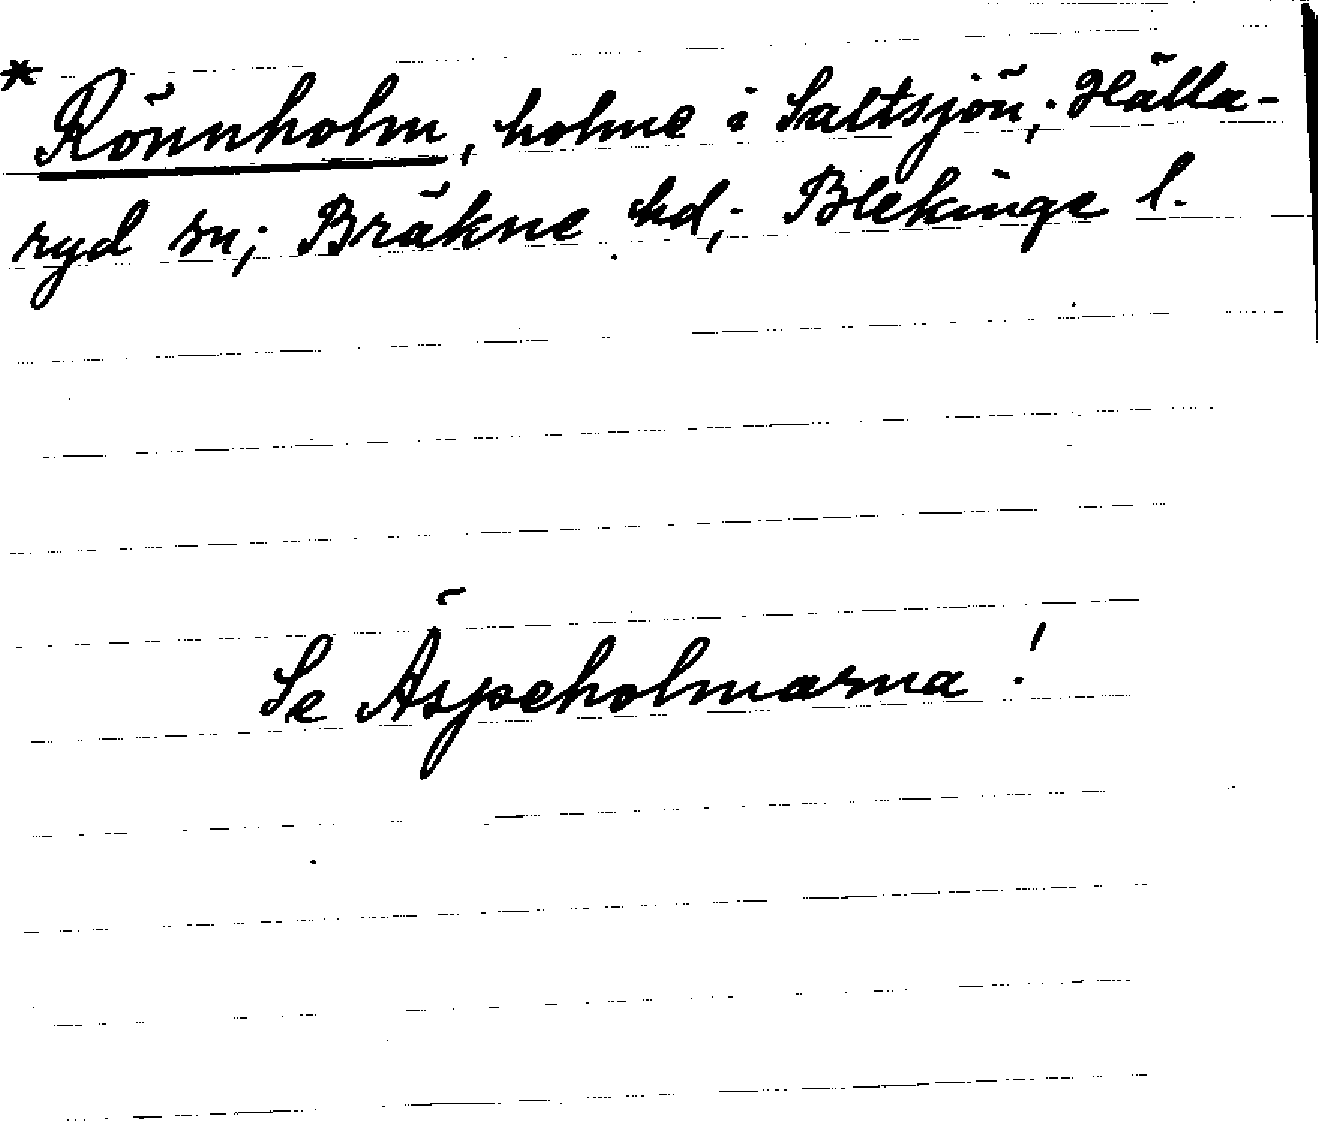 * Rönnholm, holme i Saltsjön; Hälla-
ryd sn; Bräkne hd; Blekinge l.
Se Äspeholmarna!